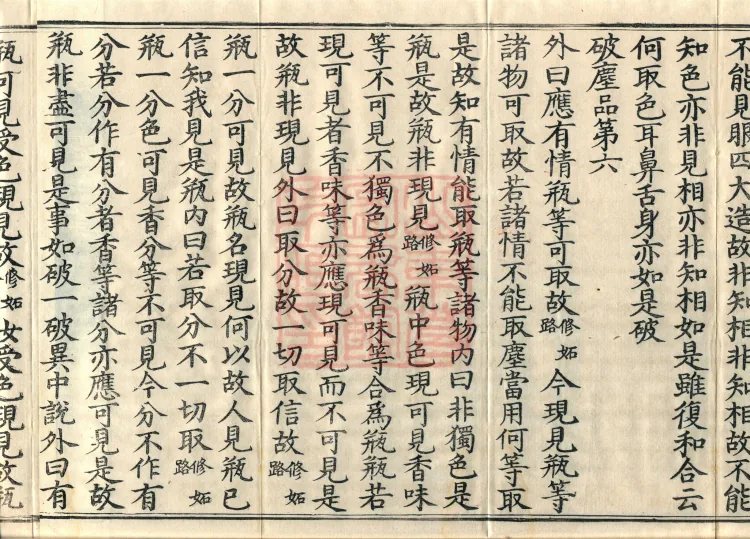 不能見眼四大造故非見相非知相故不能
知色亦非見相亦非知相如是雖復和合云
何取色耳鼻舌身亦如是破
破塵品第六
外曰應有情瓶等可取故修妬路今現見瓶等
諸物可取故若諸情不能取塵當用何等取
是故知有情能取瓶等諸物內曰非獨色是
瓶是故瓶非現見修妬路瓶中色現可見香味
等不可見不獨色爲瓶香味等合爲瓶瓶若
現可見者香味等亦應現可見而不可見是
故瓶非現見外曰取分故一切取信故修妬路
瓶一分可見故瓶名現見何以故人見瓶已
信知我見是瓶內曰若取分不一切取修妬路
瓶一分色可見香分等不可見今分不作有
分若分作有分者香等諸分亦應可見是故
瓶非盡可見是事如破一破異中說外曰有
瓶可見受色現見故修妬路汝受色現見故瓶